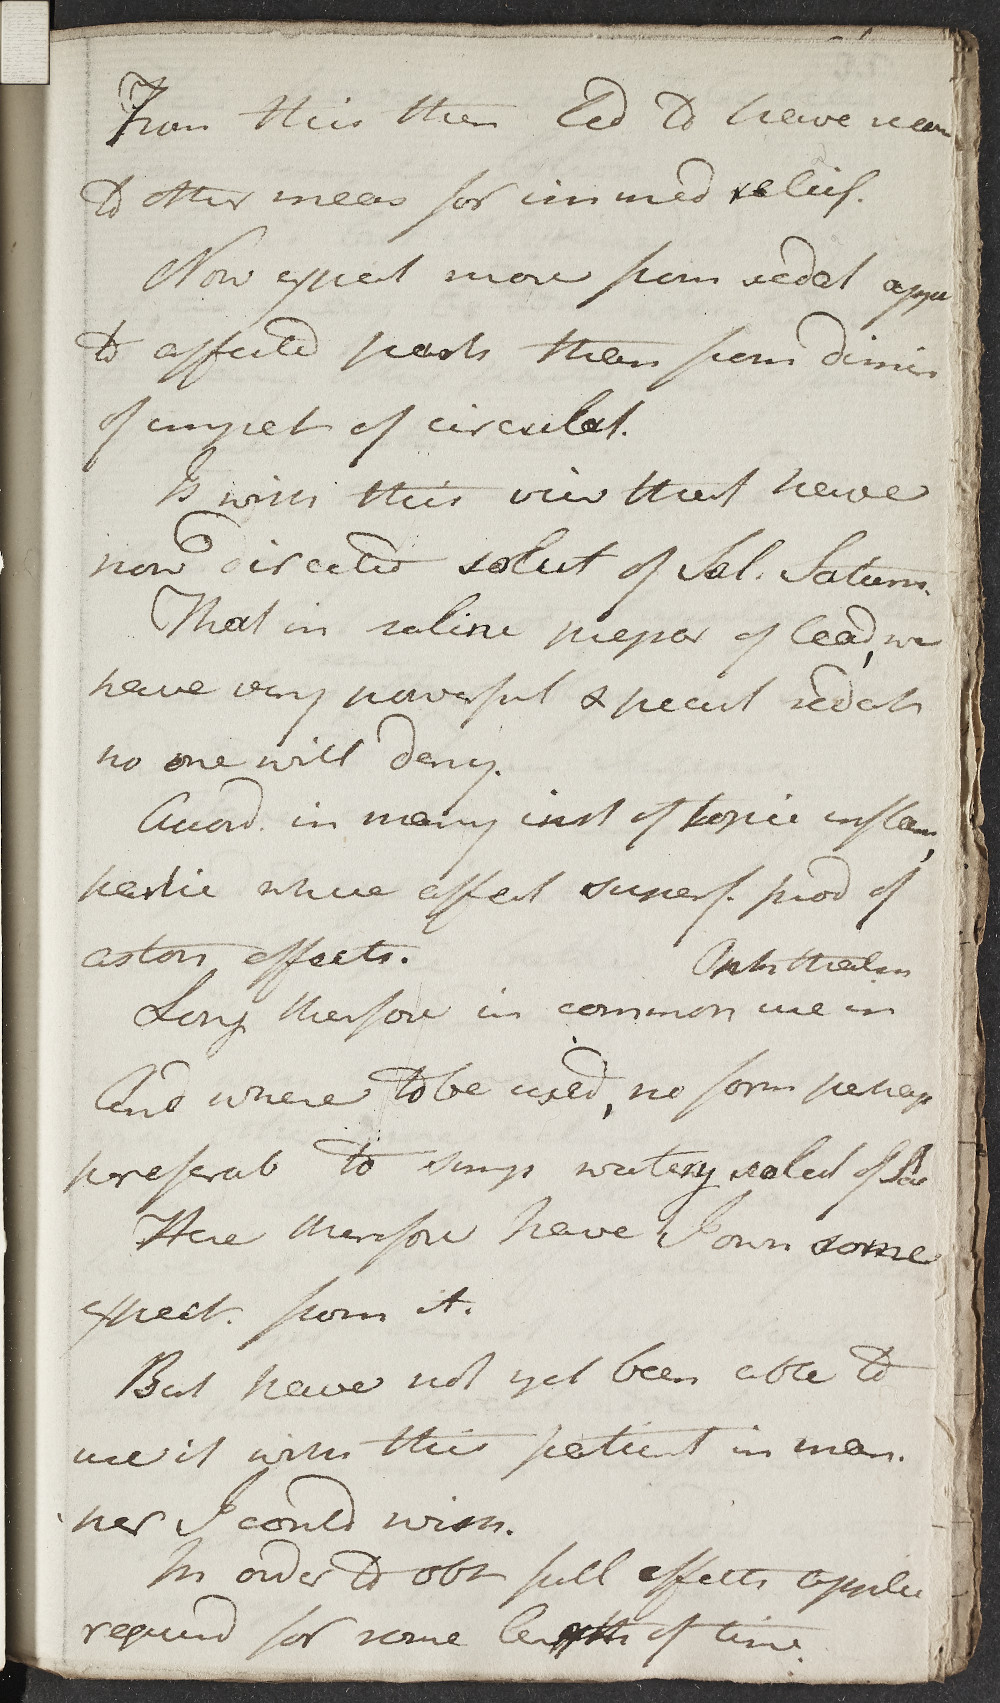 From this then led to have recou
to other meas for immed relief.
Now expect more from sedat appli
to affected parts than from dimin
of impet of circulat.
Is with this view that have
now directed solut of Sal. Saturn.
That in saline prepar of lead, we
have very powerful & pecul sedat
no one will deny.
Accord. in many inst of topic inflam,
partic where affect superf. prod of
aston effects.
Ophthalm
Long therefore in common use in
And where to be used, no form perhap
preferab to simp watery solut of Sac
Here therefore have I own some
expect. from it.
But have not yet been able to
use it with this patient in man.
ner I could wish.
In order to obt full effects applic
requird for some length of time.